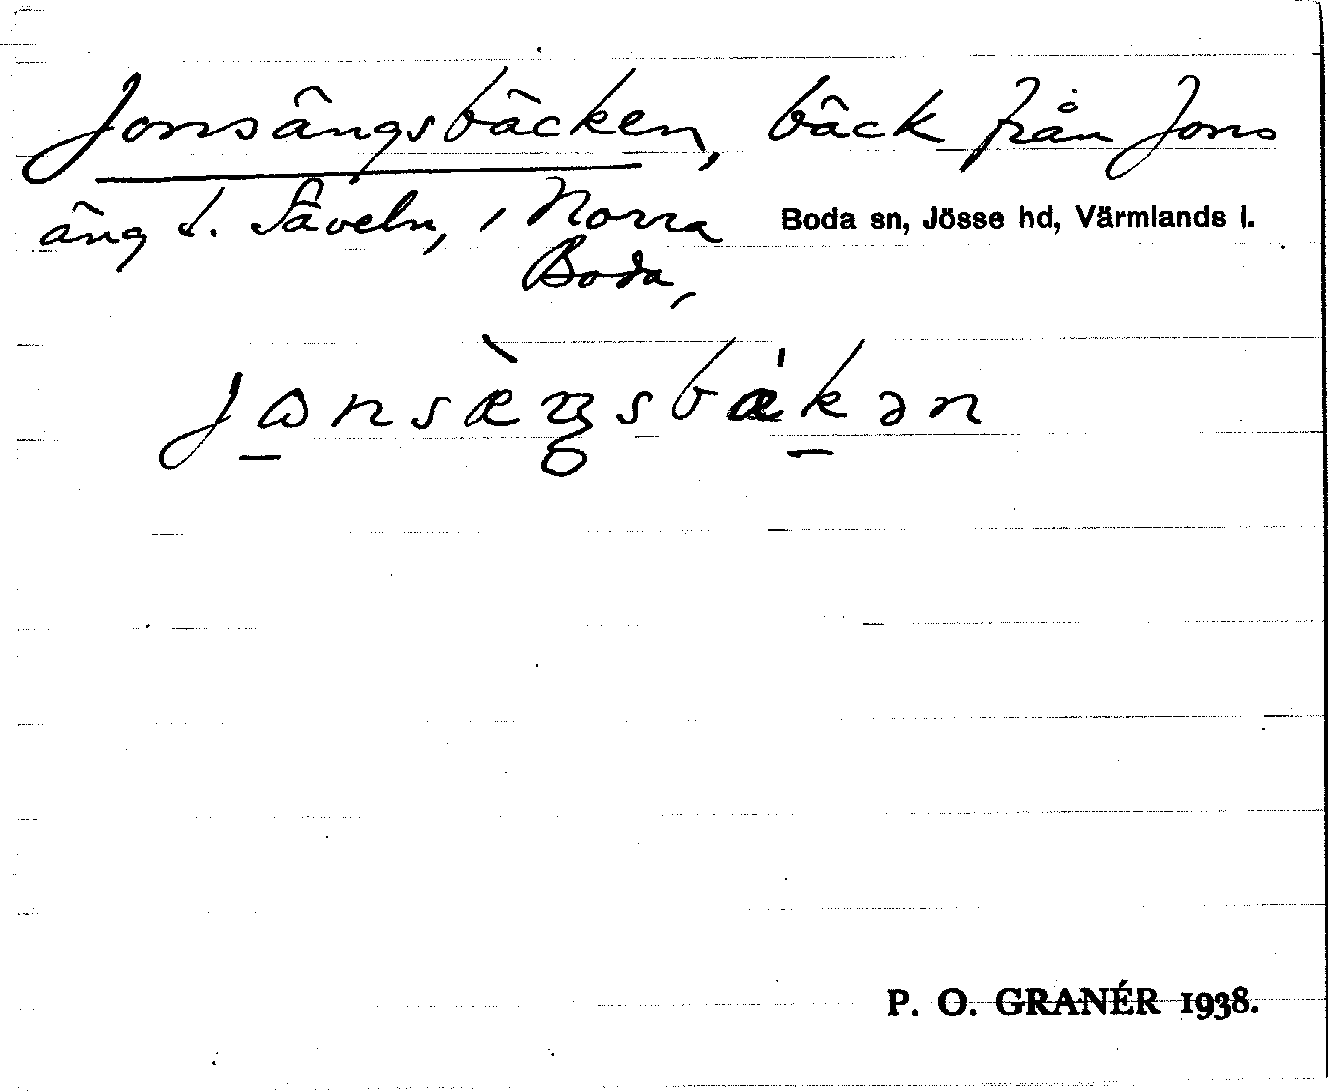 Jonsängsbäcken, bäck från Jons
äng t. Säveln, i Norra Boda sn, Jösse hd, Värmlands l.
Boda,
P. O. GRANÉR 1938.